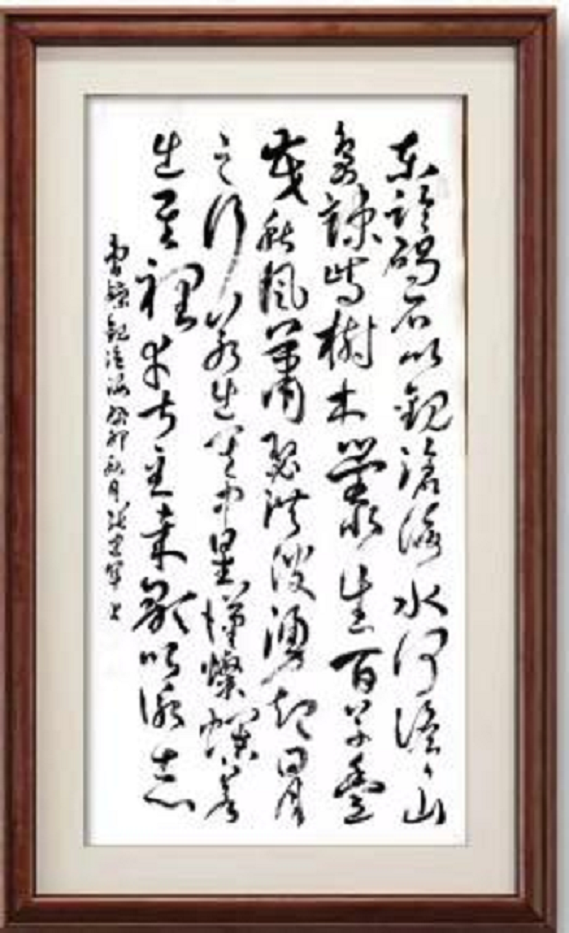 東臨碣石以觀滄海水何澹〻山
島竦峙樹木叢生百草豐
茂秋風蕭瑟洪波湧起日月
之行若出其中星漢燦爛若
出其裡幸甚至哉歌以詠志
曹操觀滄海癸卯秋月